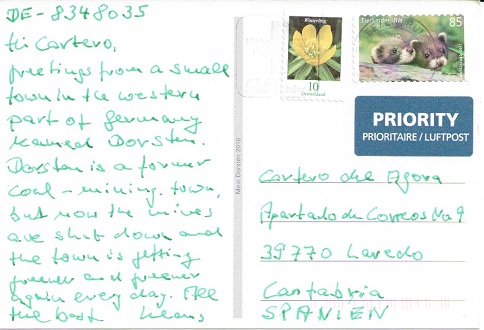 DE-8348035
Hi Cartero,
greetings from a small
town in the western
part of Germany
named Dorsten.
Dorsten is a former
coal-mining town,
but now the mines
are shut down and
the town is getting
greener and greener
again every day. All
the best Klaus,
Mein Dorsten 2016
Winterling
10
Deutschland
85
PRIORITY
PRIORITAIRE / LUFTPOST
Cartero del Agora
Apartado de Correos No 9
39770 Laredo
Cantabria
SPANIEN